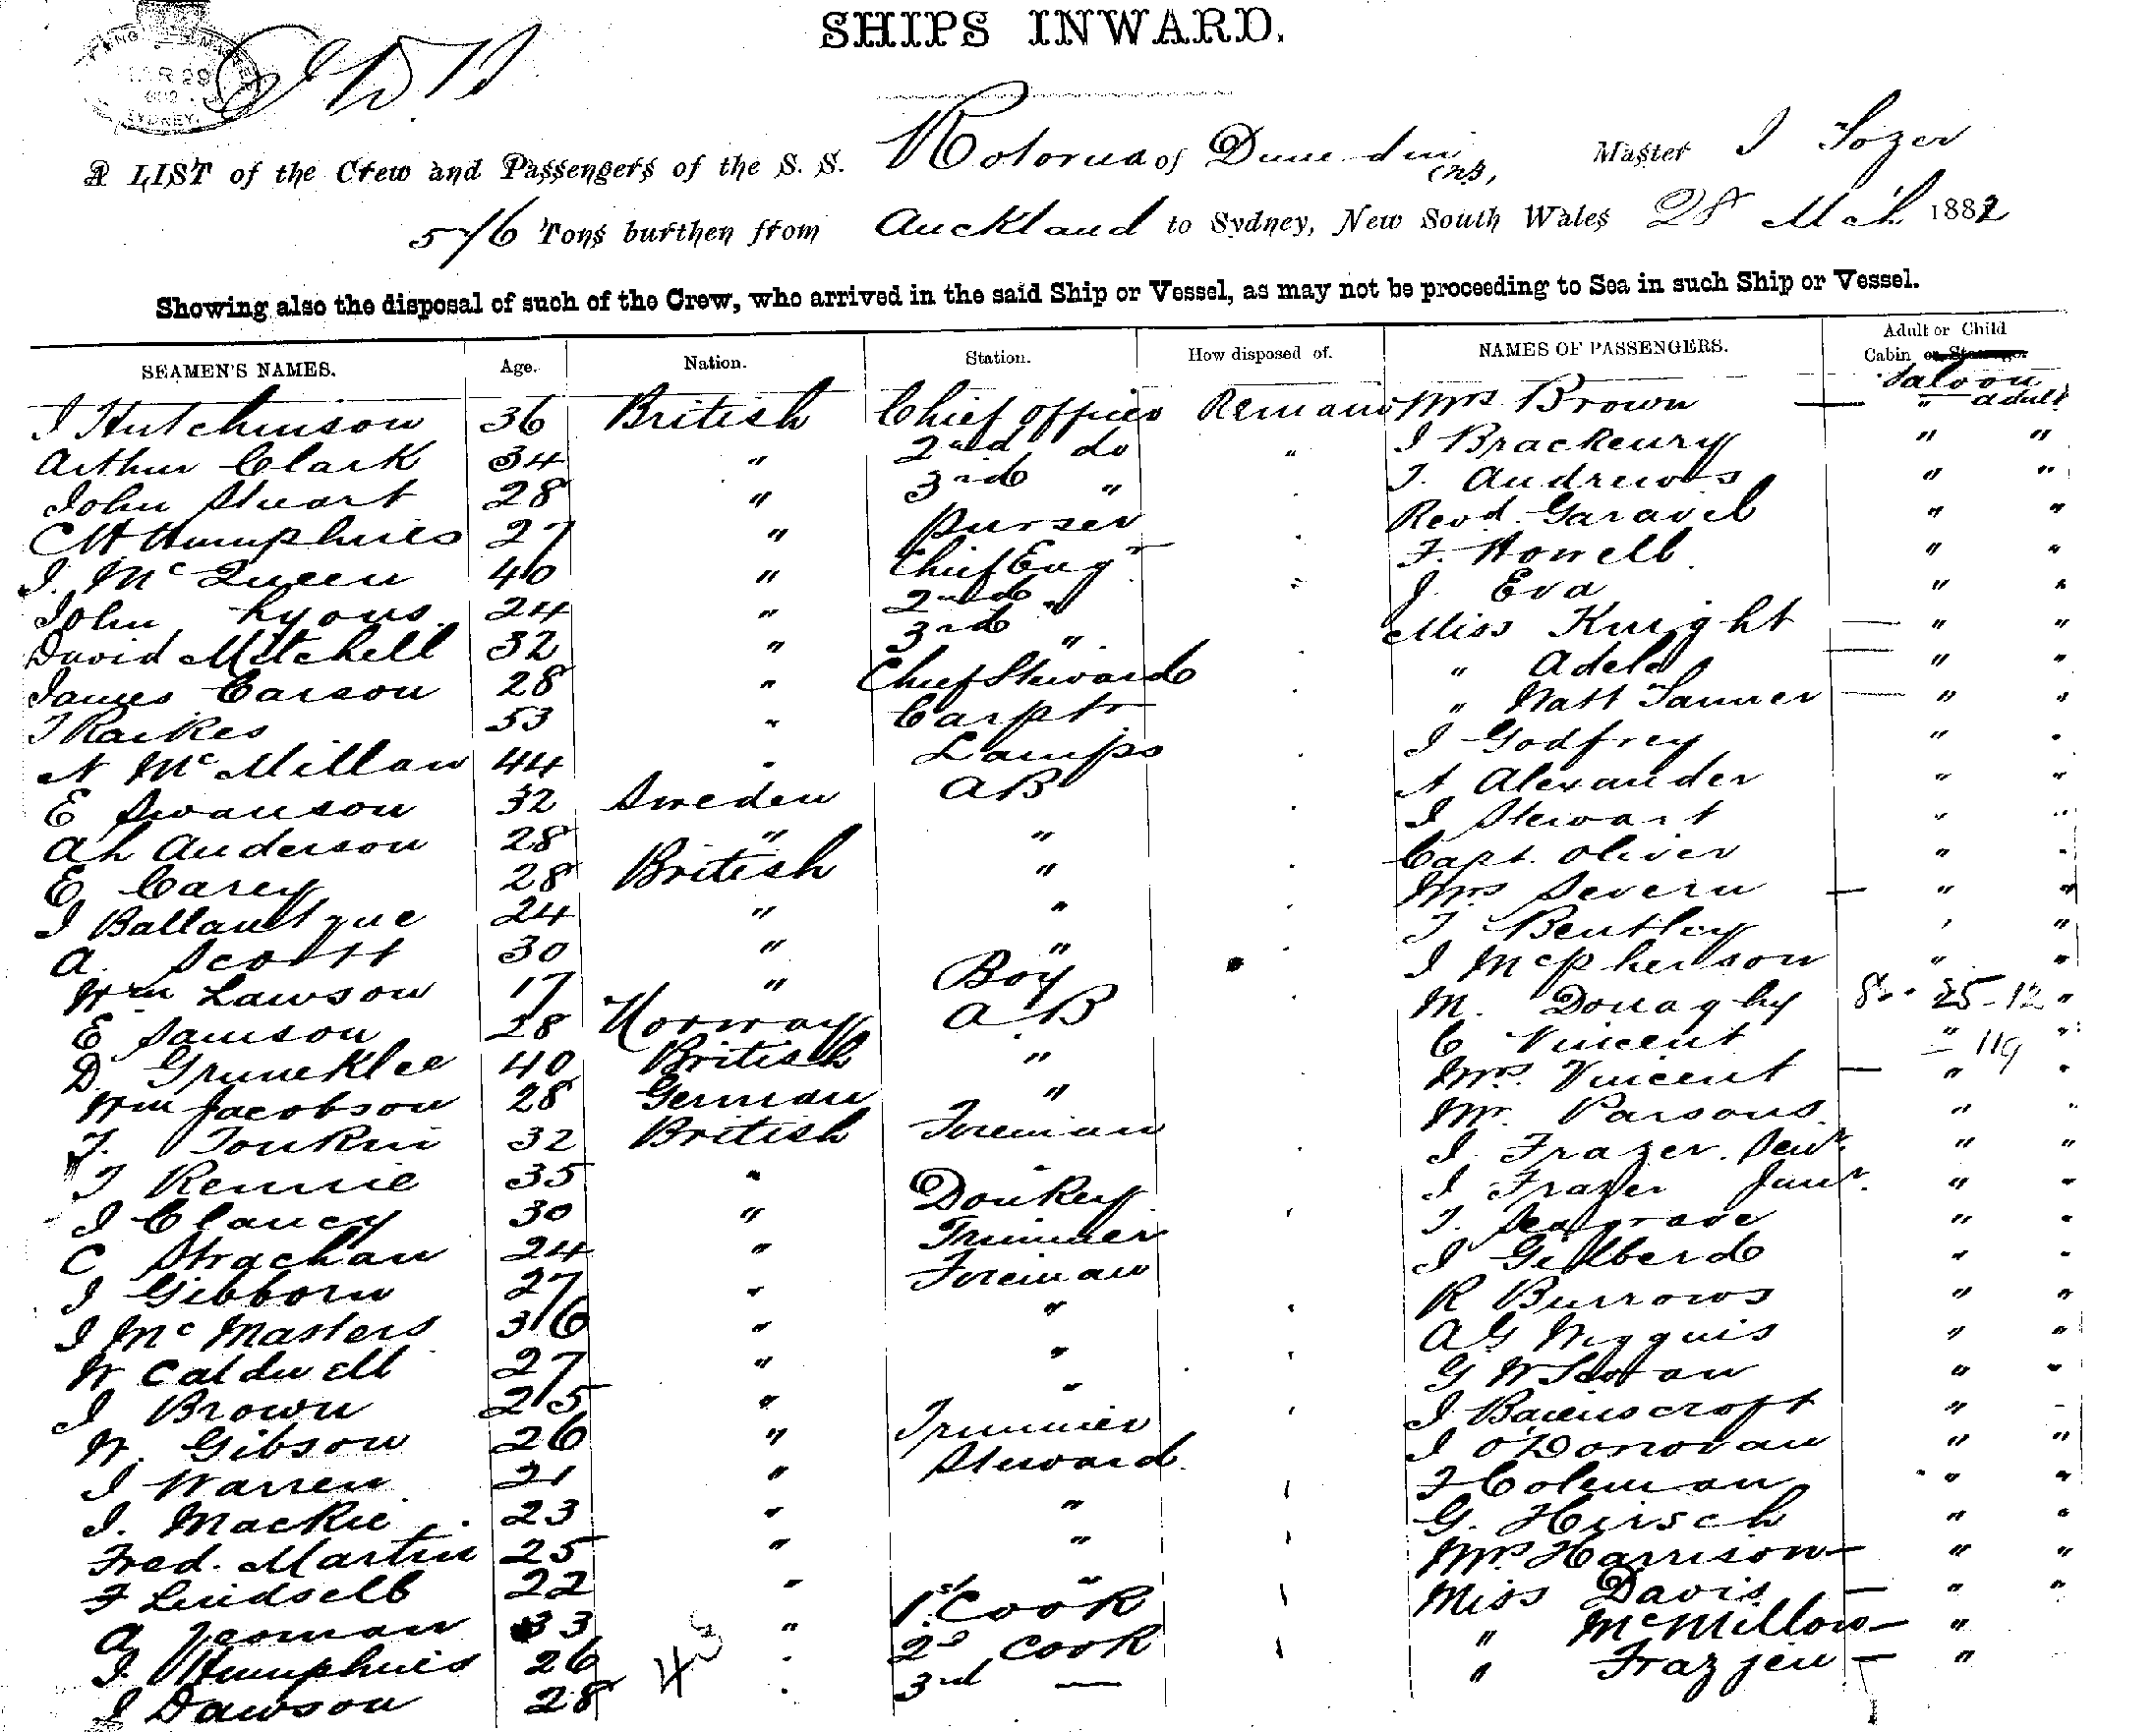 SHIPS INWARD.
MAR 29
SYDNEY.
A LIST of the Crew and Passengers of the S. S. Rotorua of Dunedin Master I Sozer
576 Tons burthen from Auckland to Sydney, New South Wales 28 Mch 1882
Showing also the disposal of such of the Crew, who arrived in the said Ship or Vessel, as may not be proceeding to Sea in such Ship or Vessel.
SEAMEN'S NAMES. Age. Nation. Station. How disposed of. NAMES OF PASSENGERS. Adult or Child Cabin or Steerage
Saloon
J Hutchinson 36 British Chief officer Remains Mrs Brown — " adult
Arthur Clark 34 " 2nd do " J Brackenry " "
John Stuart 28 " 3rd " T. Andrews " "
CH Humphries 27 " Purser Revd. Garavel " "
J. McQueen 40 " Chief Engr F. Howell " "
John Lyons 24 " 2nd " J. Eva " "
David Mitchell 32 " 3rd " Miss Knight — " "
James Carson 28 " Chief Steward " Adela — " "
T Raikes 53 " Carptr " Watt Tanner — " "
A McMillan 44 " Lamps J Godfrey " "
E Swanson 32 Sweden AB A Alexander " "
Ah Anderson 28 " " J Stewart " "
E Carey 28 British " Capt. Oliver " "
J Ballantyne 24 " " Mrs Severn — " "
A. Scott 30 " " T Bentley " "
Wm Lawson 17 " Boy J McPherson " "
E Samson 28 Norway AB M. Donaghy 8 .. 25 - 12 "
D Gruneklee 40 British " C Vincent " "
119
Wm Jacobson 28 German " Mrs. Vincent — " "
F. Tonkin 32 British Fireman Mr. Parsons " "
T Rennie 35 " " J. Frazer. Senr. " "
J Clancy 30 " Donkey J Frazer Junr. " "
C Strachan 24 " Trimmer T. Seagrave " "
J Gibborn 27 " Fireman J Gillberd " "
J McMasters 36 " " R Burrows " "
W Caldwell 27 " " AG " "
J Brown 25 " " G W " "
W. Gibson 26 " Trimmer J Bainscroft " "
J Warren 21 " Steward J O'Donovan " "
J. Mackie 23 " " F Coleman " "
Fred. Martin 25 " " G. Hirsch " "
F Lindsell 22 " " Mrs Harrison — " "
A Yeoman 33 " 1st Cook Miss Davis — " "
J. Humphries 26 " 2d Cook " McMillow — "
J Dawson 28 " 3rd — " Frazjen — "
43